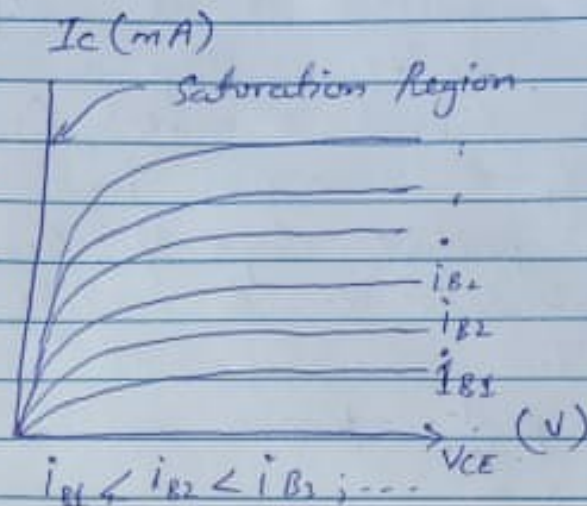 Ic (mA)
Saturation Region
iB2
iB2
iB1
VCE (V)
iB1 < iB2 < iB3 ; ---